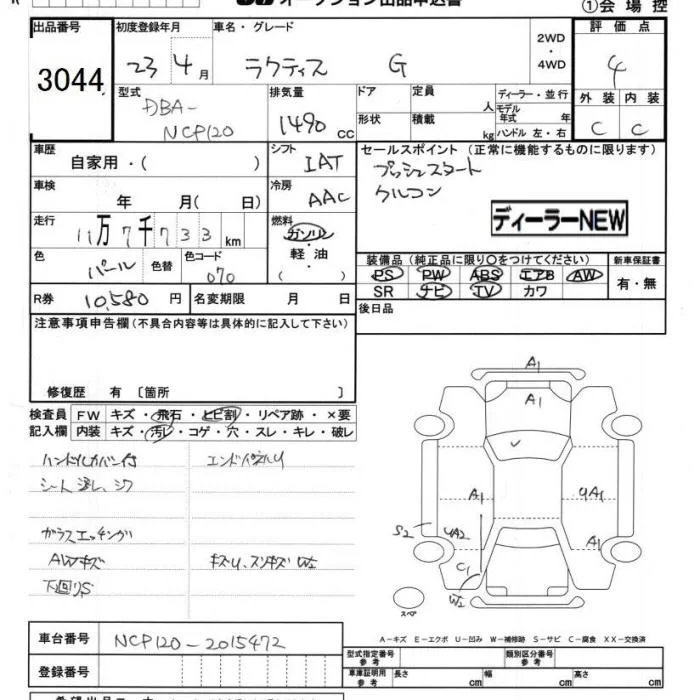 ①会場控
出品番号 3044
初度登録年月 23 4月
車名・グレード ラクティス G
2WD
・
4WD
評価点 4
外装 内装
C C
型式 DBA-
NCP120
排気量 1490 cc
ドア 形状
定員 人
積載 kg
ディーラー・並行
モデル年式 年
ハンドル 左・右
車歴 自家用・( )
シフト IAT
セールスポイント (正常に機能するものに限ります)
プッシュスタート
クルコン
ディーラーNEW
車検 年 月( 日)
冷房 AAC
走行 11万7千733km
燃料 ガソリン
・
軽油
( )
色 パール 色替 色コード 070
装備品 (純正品に限り○をつけてください)
PS PW ABS エアB AW
SR ナビ TV カワ
新車保証書
有・無
R券 10,580円 名変期限 月 日
後日品
注意事項申告欄(不具合内容等は具体的に記入して下さい)
修復歴 有 〔箇所 〕
検査員 FW キズ・飛石・ヒビ割・リペア跡・×要
記入欄 内装 キズ・汚レ・コゲ・穴・スレ・キレ・破レ
ハンドルカバー付 エンドパネルU
シート汚レ、シワ
ガラスエッチング
AWキズ キズU、スリキズ W2
下回りS
A1
A1
A1
4A1
S2
4A2
A1
C1
W2
スペア
A−キズ E−エクボ U−凹み W−補修跡 S−サビ C−腐食 XX−交換済
車台番号 NCP120-2015472
登録番号
型式指定番号 参考
類別区分番号 参考
車庫証明用 参考 長さ cm 幅 cm 高さ cm